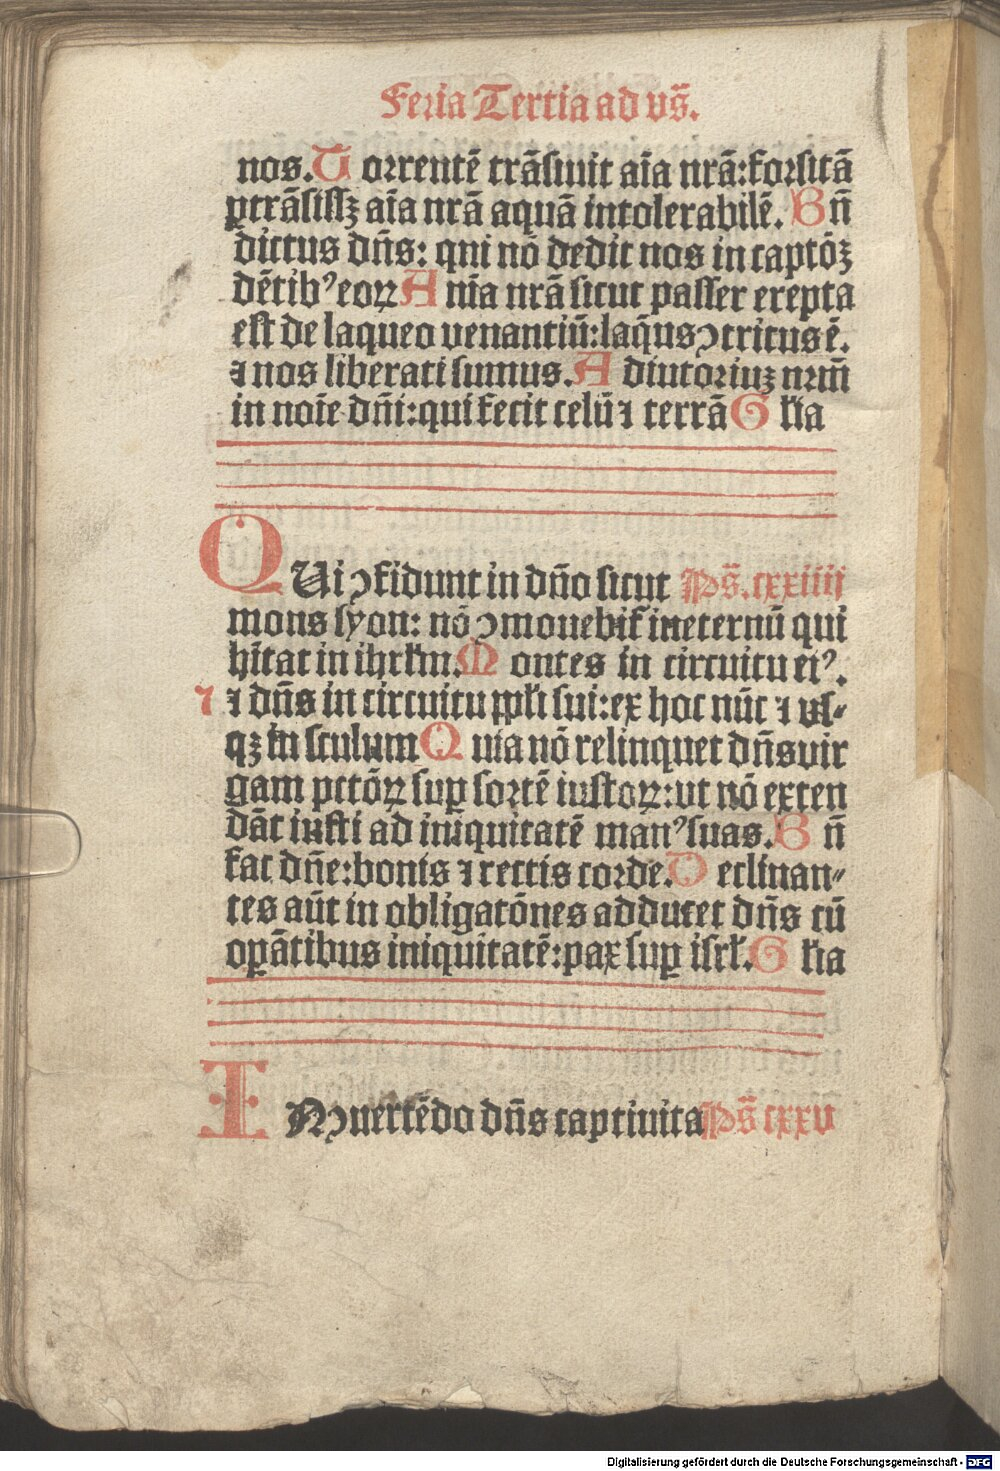 Feria Tertia ad vs̄.
nos. Torrentē trāſiuit aīa nrā: forſitā
ꝑtrāſiſſꝫ aīa nrā aquā intolerabilē. Bn̄
dictus dn̄s: qui nō dedit nos in captōꝫ
dētibꝰ eoꝝ Anīa nrā ſicut paſſer erepta
eſt de laqueo venantiū: laq̄us ꝯtritus ē.
⁊ nos liberati ſumus. Adiutoriuꝫ nrm̄
in noīe dn̄i: qui fecit celū ⁊ terrā Głia
QUi ꝯfidunt in dn̄o ſicut Ps̄. cxxiiii
mons ſyon: nō ꝯmouebit̄ ineternū qui
hītat in ihrłm. Montes in circuitu eiꝰ.
⁊ ⁊ dn̄s in circuitu ppłi ſui: ex hoc nūc ⁊ vſ⸗
qꝫ in ſculum Quia nō relinquet dn̄s vir
gam pctōꝝ ſuꝑ ſortē iuſtoꝝ: ut nō exten
dāt iuſti ad iniquitatē manꝰ ſuas. Bn̄
fac dn̄e: bonis ⁊ rectis corde. Declinan⸗
tes aūt in obligatōnes adducet dn̄s cū
oꝑātibus iniquitatē: pax ſuꝑ iſrł. Głia
INꝯuertēdo dn̄s captiuita Ps̄ cxxv
Digitalisierung gefördert durch die Deutsche Forschungsgemeinschaft - DFG